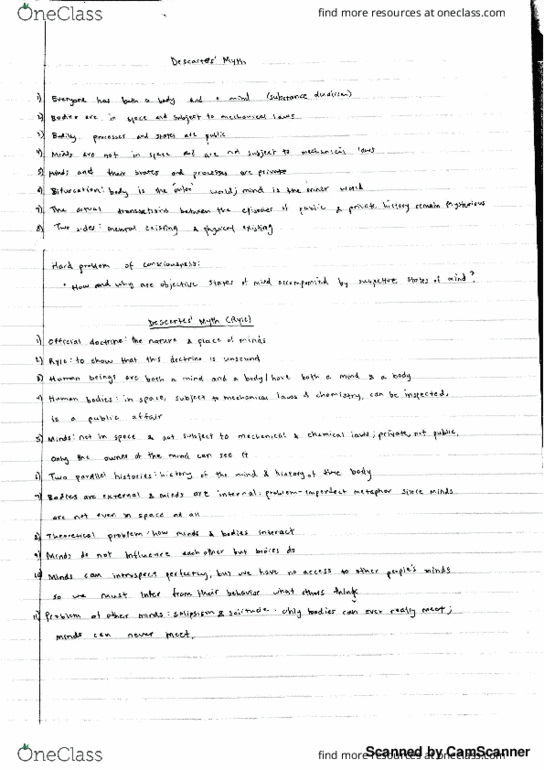 OneClass
find more resources at oneclass.com
Descartes' Myth
1) Everyone has both a body and a mind (substance dualism)
2) Bodies are in space and subject to mechanical laws
3) Bodily processes and states are public
4) Minds are not in space and are not subject to mechanical laws
5) Minds and their states and processes are private
6) Bifurcation: body is the "outer" world; mind is the inner world
7) The actual transactions between the episodes of public & private history remain mysterious
8) Two sides: mental existing & physical existing
Hard problem of consciousness:
• How and why are objective states of mind accompanied by subjective states of mind?
Descartes' Myth (Ryle)
1) Official doctrine: the nature & place of minds
2) Ryle: to show that this doctrine is unsound
3) Human beings are both a mind and a body/have both a mind & a body
4) Human bodies: in space, subject to mechanical laws & chemistry, can be inspected,
is a public affair
5) Minds: not in space & not subject to mechanical & chemical laws; private, not public,
only the owner of the mind can see it
6) Two parallel histories: history of the mind & history of the body
7) Bodies are external & minds are internal: problem-imperfect metaphor since minds
are not even in space at all
8) Theoretical problem: how minds & bodies interact
9) Minds do not influence each other but bodies do
10) Minds can introspect perfectly, but we have no access to other people's minds
so we must infer from their behavior what others think
11) Problem of other minds: solipsism & solitude. only bodies can ever really meet;
minds can never meet.
OneClass
find more resources at oneclass.com
Scanned by CamScanner